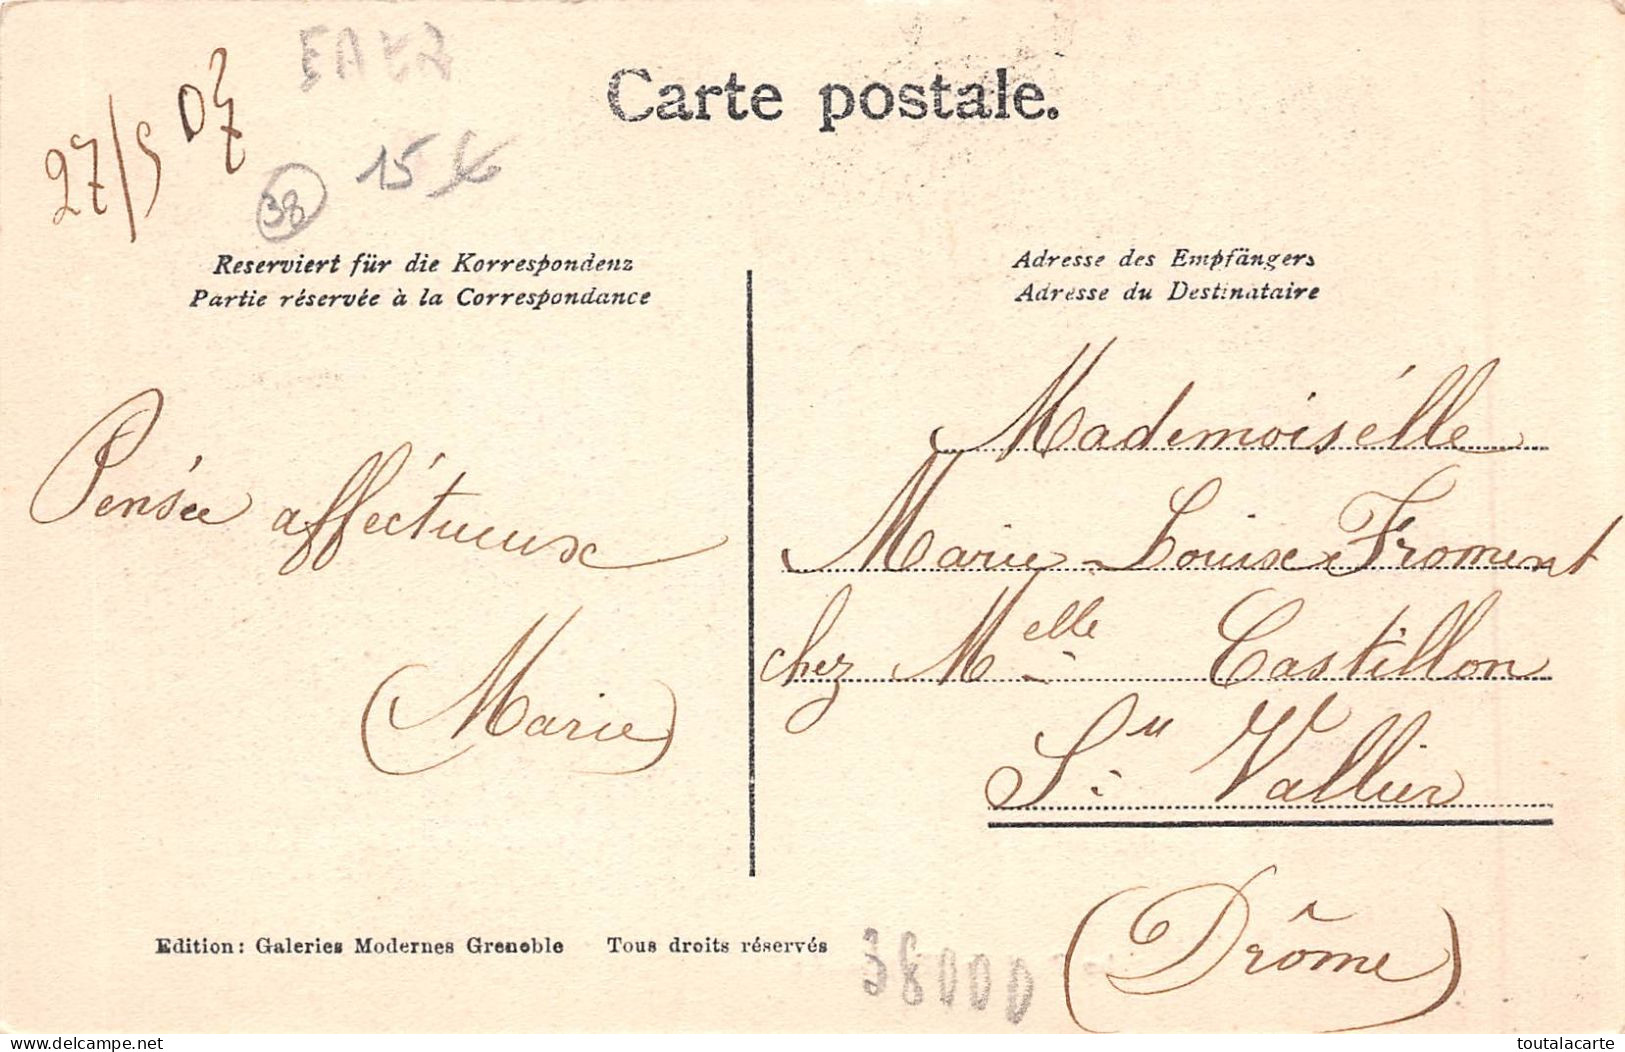 Carte postale.
27/5 07
38
15
Reserviert für die Korrespondenz
Partie réservée à la Correspondance
Adresse des Empfängers
Adresse du Destinataire
Pensée afféctueuse
(Marie)
Mademoisélle
Marie-Louise Froment
chez Melle Castillon
St Vallier
(Drôme)
Edition: Galeries Modernes Grenoble Tous droits réservés
38000
delcampe.net
toutalacarte